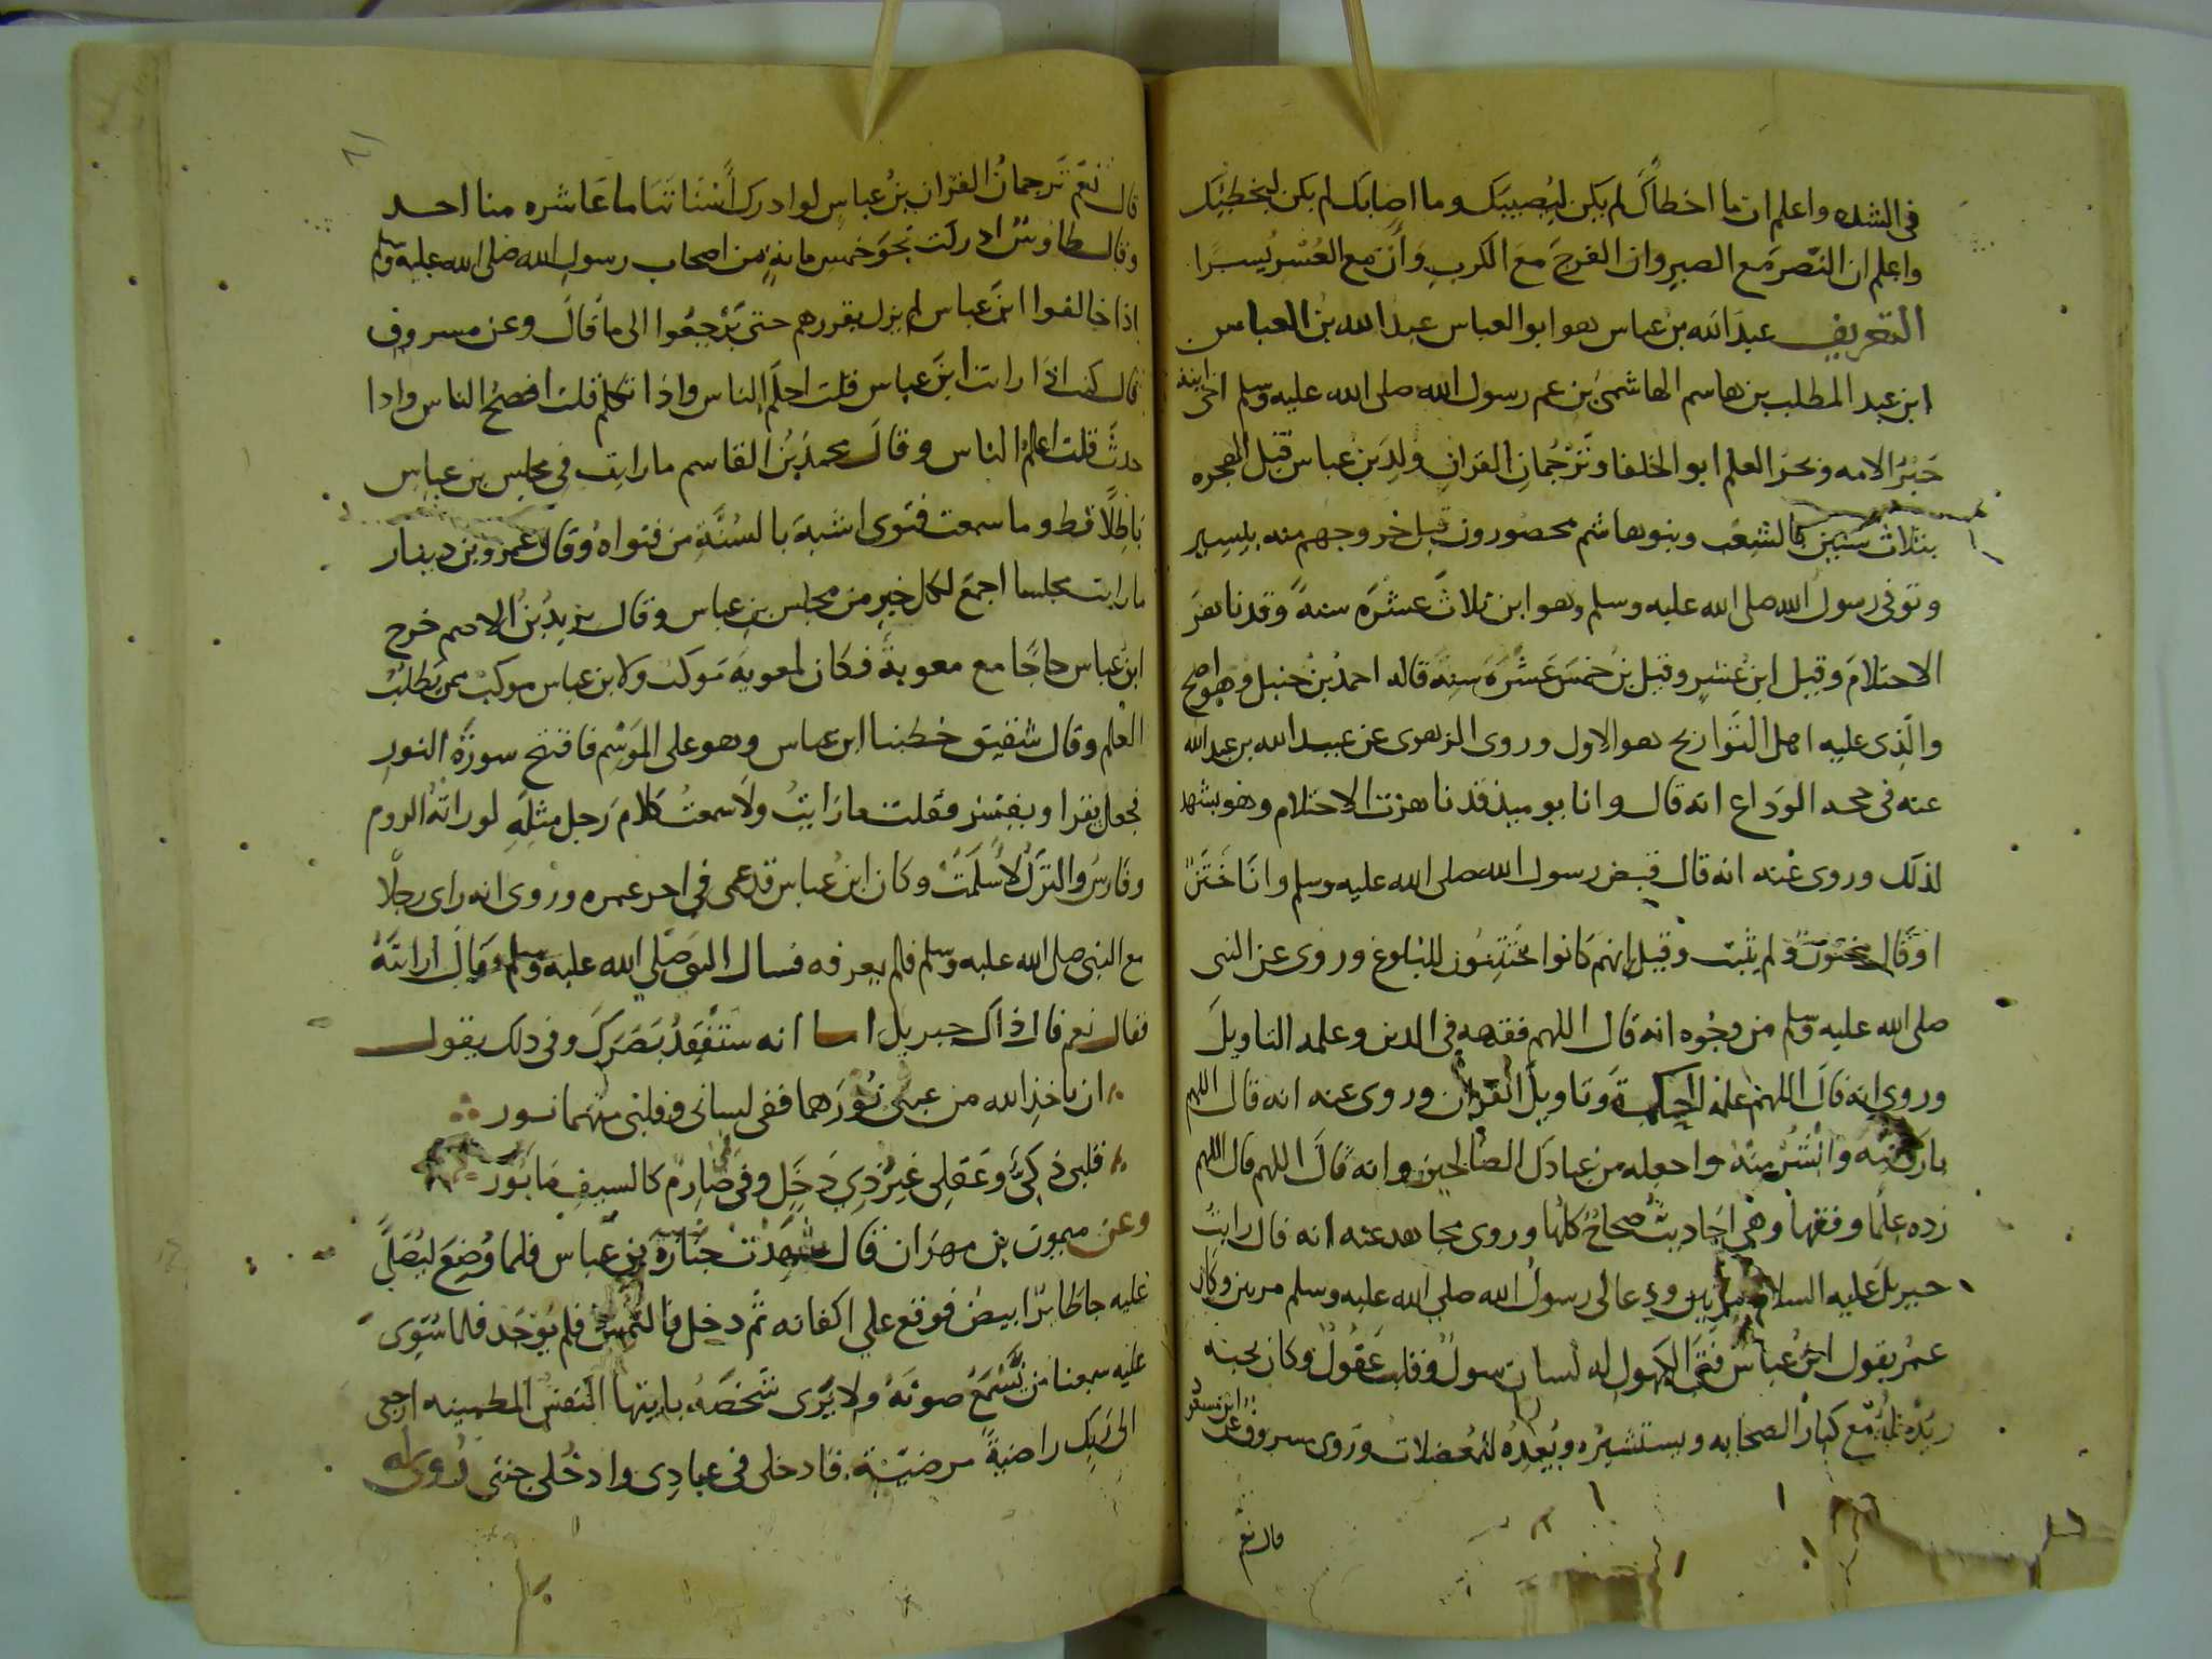 فى الشده واعلم ان ما اخطاك لم يكن ليصيبك وما اصابك لم يكن ليخطيك
واعلم ان النصر مع الصبر وان الفرج مع الكرب وأن مع العسر يسرا
التعريف عبد الله بن عباس هو ابو العباس عبد الله بن العباس
ابن عبد المطلب بن هاشم الهاشمى بن عم رسول الله صلى الله عليه وسلم
حبر الامه وبحر العلم ابو الخلفا وترجمان القران ولد بن عباس قبل الهجره
بثلاث سنين بالشعب وبنو هاشم محصورون قبل خروجهم منه بيسير
وتوفى رسول الله صلى الله عليه وسلم وهو ابن ثلاث عشرة سنة وقد ناهز
الاحتلام وقيل ابن عشر وقيل بن خمس عشرة سنة قاله احمد بن حنبل
والذى عليه اهل التواريخ هو الاول وروى الزهرى عن عبيد الله بن عبد الله
عنه فى حجه الوداع انه قال وانا يوميذ قد ناهزت الاحتلام وهو يشهد
لذلك وروى عنه انه قال قبض رسول الله صلى الله عليه وسلم وانا ختن
او قال مختون ولم يثبت وقيل انهم كانوا يختتنون للبلوغ وروى عن النبى
صلى الله عليه وسلم من وجوه انه قال اللهم فقهه فى الدين وعلمه التاويل
وروى انه قال اللهم علمه الحكمة وتاويل القران وروى عنه انه قال اللهم
بارك فيه وانشر منه واجعله من عبادك الصالحين وانه قال اللهم قال اللهم
زده علما وفقها وهى احاديث صحاح كلها وروى مجاهد عنه انه قال رايت
جبريل عليه السلام مرتين ودعا لى رسول الله صلى الله عليه وسلم مرتين وكان
عمر يقول ابن عباس فتى الكهول له لسان سول وقلب عقول وكان يحبه
ويدنيه مع كبار الصحابه ويستشيره ويعده للمعضلات وروى مسروق عن ابن مسعود
قال نعم
قال نعم ترجمان القران بن عباس لو ادرك أسناننا ما عاشره منا احد
وقال طاووس ادركت نحو خمس مايه من اصحاب رسول الله صلى الله عليه وسلم
اذا خالفوا ابن عباس لم يزل يقررهم حتى يرجعوا الى ما قال وعن مسروق
قال كنت اذا رايت ابن عباس قلت اجمل الناس واذا تكلم قلت افصح الناس واذا
حدث قلت اعلم الناس وقال محمد بن القاسم ما رايت فى مجلس بن عباس
باطلا قط وما سمعت فتوى اشبه بالسنة من فتواه وقال عمرو بن دينار
ما رايت مجلسا اجمع لكل خير من مجلس بن عباس وقال يزيد بن الاصم خرج
ابن عباس حاجا مع معوية فكان لمعويه موكب ولابن عباس موكب ممن يطلب
العلم وقال شقيق خطبنا ابن عباس وهو على الموسم فافتتح سورة النور
فجعل يقرا ويفسر فقلت ما رايت ولا سمعت كلام رجل مثله لو راته الروم
وفارس والترك لاسلمت وكان ابن عباس قد عمى فى اخر عمره وروى انه راى رجلا
مع النبى صلى الله عليه وسلم فلم يعرفه فسال النبى صلى الله عليه وسلم وقال ارايته
فقال نعم قال ذاك جبريل اما انه ستفقد بصرك وفى ذلك يقول
ان ياخذ الله من عينى نورهما ففى لسانى وقلبى منهما نور
قلبى ذكى وعقلى غير ذى دخل وفى صارم كالسيف مابور
وعن ميمون بن مهران قال شهدت جنازة بن عباس فلما وضع ليصلى
عليه جا طائر ابيض فوقع على اكفانه ثم دخل فالتمس فلم يوجد فلما سوى
عليه سمعنا من نسمع صوته ولا يرى شخصه يا ايتها النفس المطمينه ارجعى
الى ربك راضية مرضية فادخلى فى عبادى وادخلى جنتى روى له